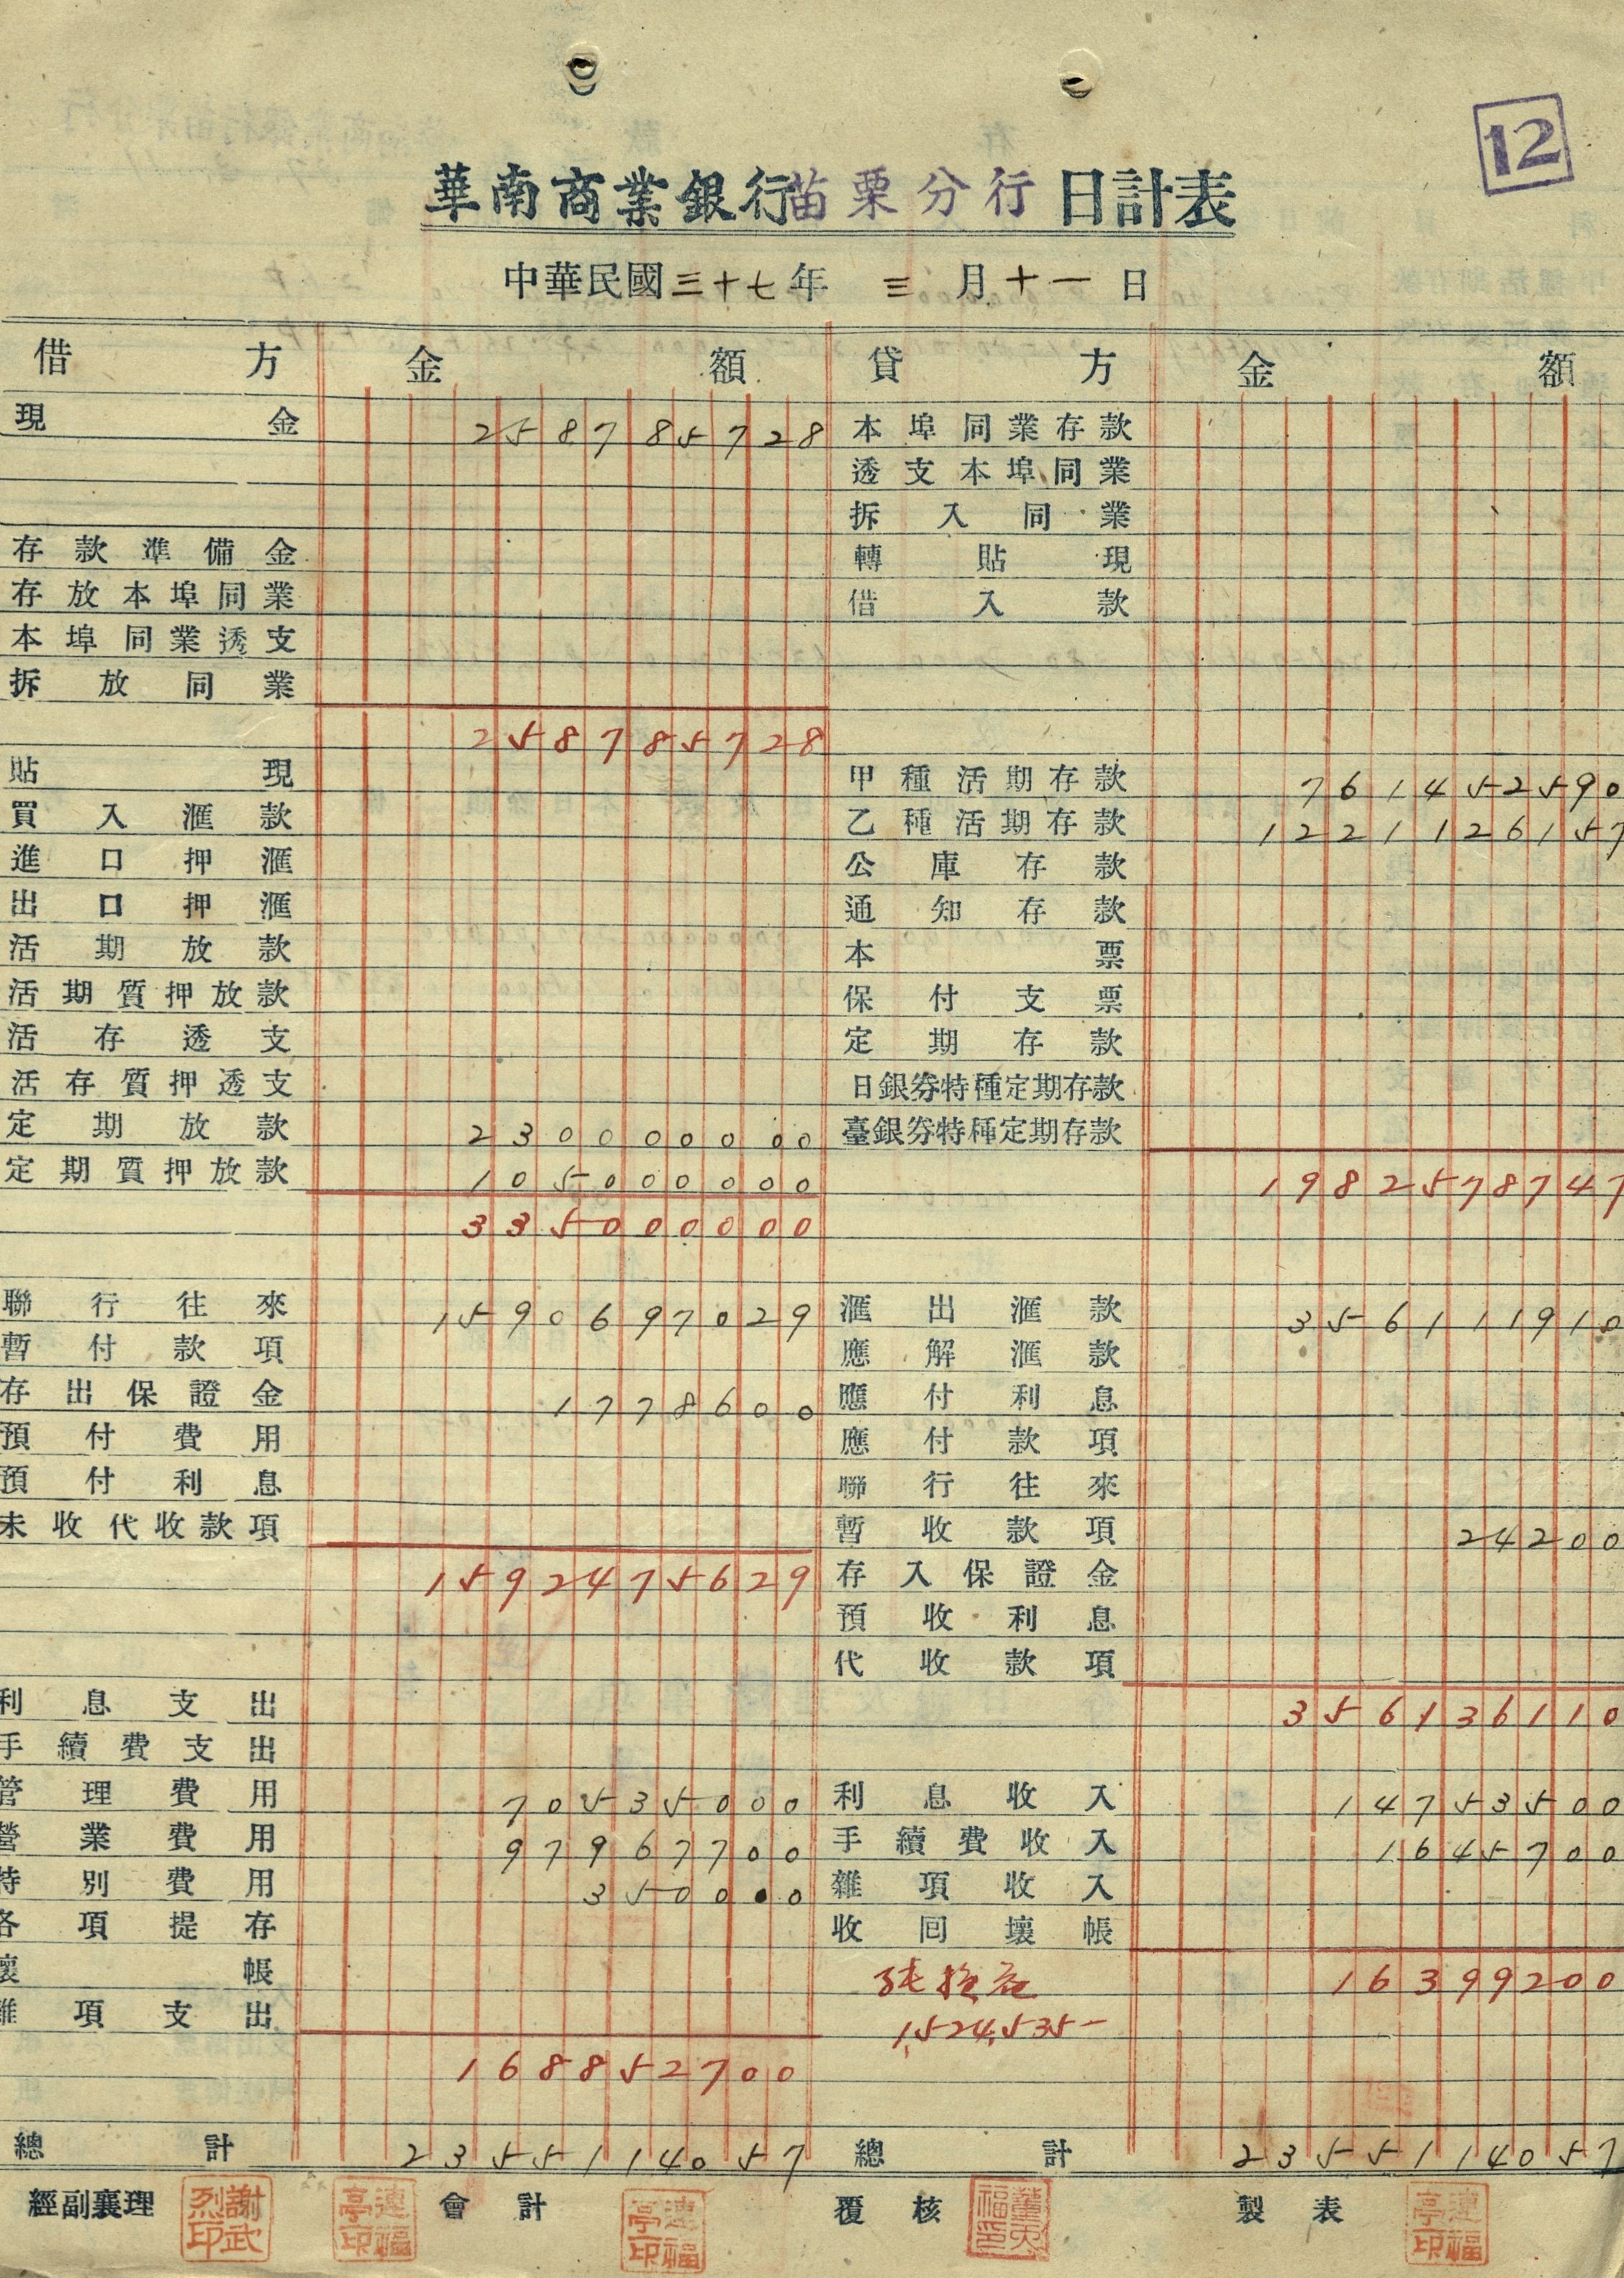 12
華南商業銀行苗栗分行日計表
中華民國三十七年 三月十一日
借方 金額 貸方 金額
現金 258785728 本埠同業存款
透支本埠同業
拆入同業
存款準備金 轉貼現
存放本埠同業 借入款
本埠同業透支
拆放同業
258785728
貼現 甲種活期存款 761452590
買入滙款 乙種活期存款 1221126157
進口押滙 公庫存款
出口押滙 通知存款
活期放款 本票
活期質押放款 保付支票
活存透支 定期存款
活存質押透支 日銀券特種定期存款
定期放款 230000000 臺銀券特種定期存款
定期質押放款 105000000 1982578747
335000000
聯行往來 1590697029 滙出滙款 356111910
暫付款項 應解滙款
存出保證金 1778600 應付利息
預付費用 應付款項
預付利息 聯行往來
未收代收款項 暫收款項 24200
1592475629 存入保證金
預收利息
代收款項
利息支出 356136110
手續費支出
管理費用 70535000 利息收入 14753500
營業費用 97967700 手續費收入 1645700
特別費用 350000 雜項收入
各項提存 收回壞帳
壞帳 純損益 16399200
雜項支出 1,524,535-
168852700
總計 2355114057 總計 2355114057
經副襄理 謝武烈印 連福亭印 會計 連福亭印 覆核 製表 連福亭印